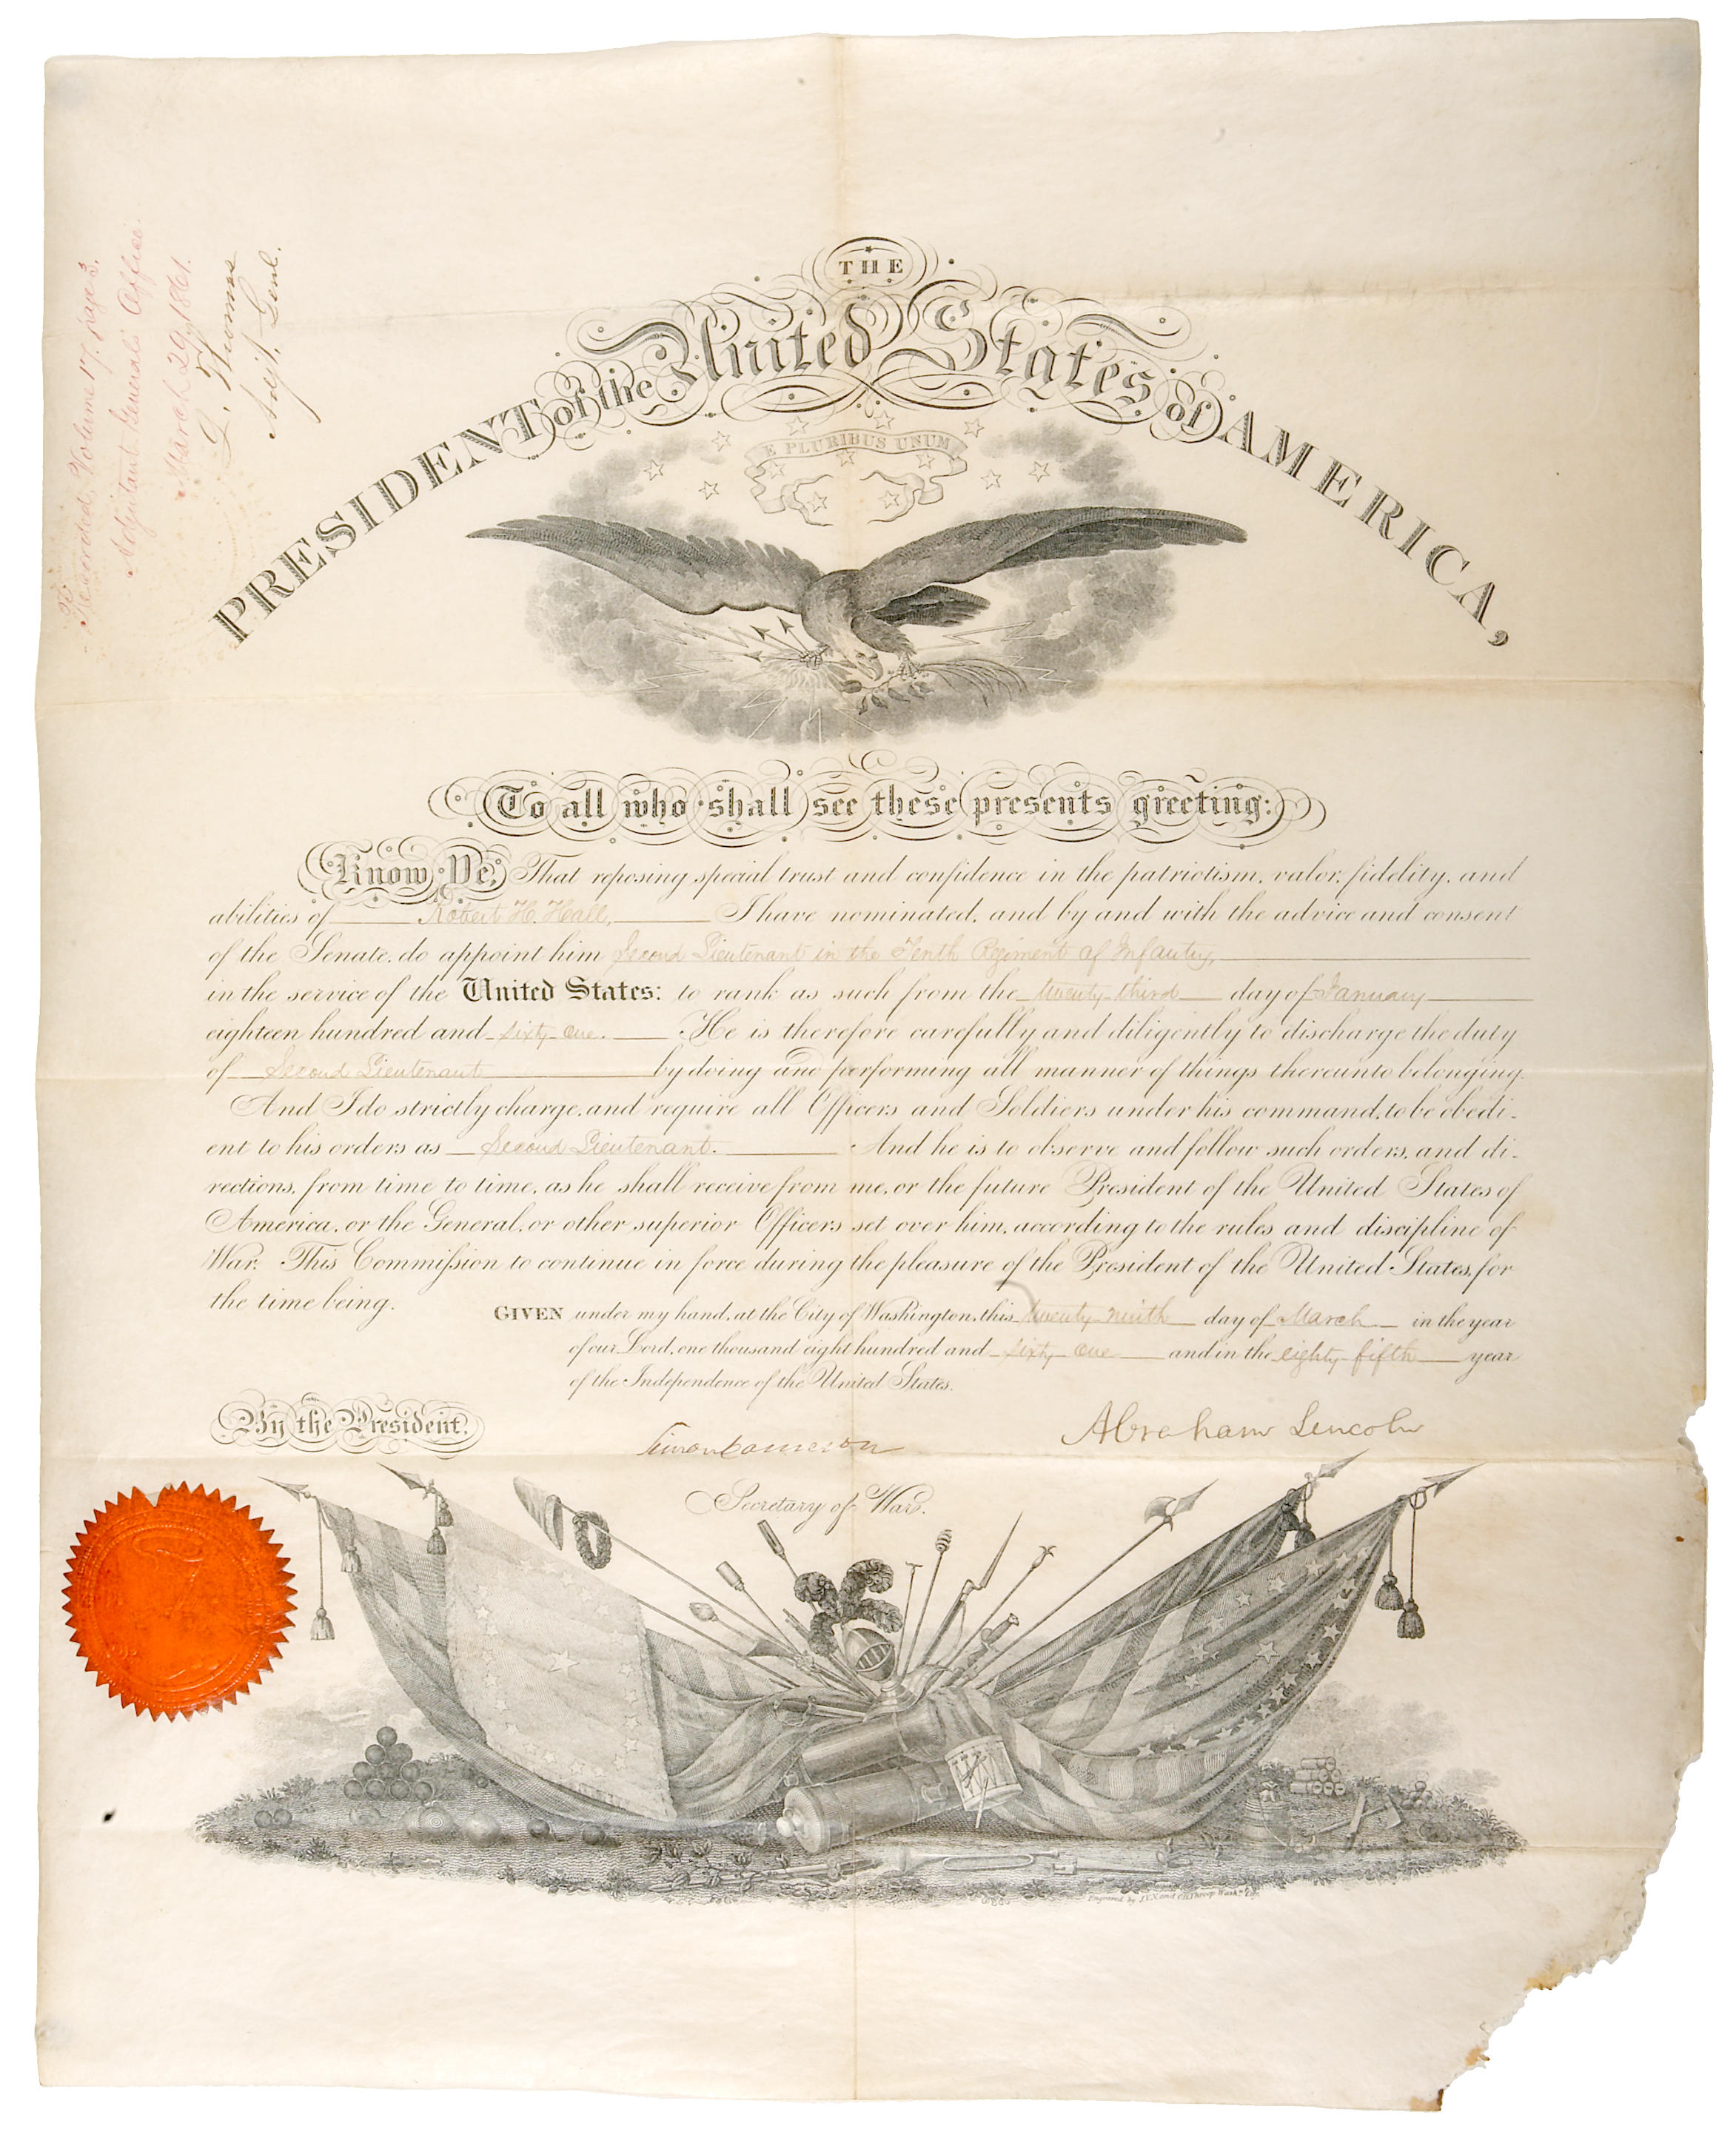 Recorded, Volume 17. page 3,
Adjutant General's Office.
March 29, 1861.
L. Thomas
Adjt. Genl.
THE
PRESIDENT of the United States of AMERICA,
E PLURIBUS UNUM
To all who shall see these presents greeting:
Know Ye, That reposing special trust and confidence in the patriotism, valor, fidelity, and
abilities of Robert H. Hall, I have nominated, and by and with the advice and consent
of the Senate, do appoint him Second Lieutenant in the Tenth Regiment of Infantry,
in the service of the United States: to rank as such from the twenty third day of January
eighteen hundred and sixty one. He is therefore carefully and diligently to discharge the duty
of Second Lieutenant by doing and performing all manner of things thereunto belonging.
And I do strictly charge, and require all Officers and Soldiers under his command, to be obedi-
ent to his orders as Second Lieutenant. And he is to observe and follow such orders, and di-
rections, from time to time, as he shall receive from me, or the future President of the United States of
America, or the General, or other superior Officers set over him, according to the rules and discipline of
War. This Commission to continue in force during the pleasure of the President of the United States, for
the time being.
GIVEN under my hand, at the City of Washington, this twenty ninth day of March in the year
of our Lord, one thousand eight hundred and sixty one and in the eighty fifth year
of the Independence of the United States.
By the President.
Abraham Lincoln
Simon Cameron
Secretary of War.
Engraved by J.V.N. and O.H. Throop Wash.